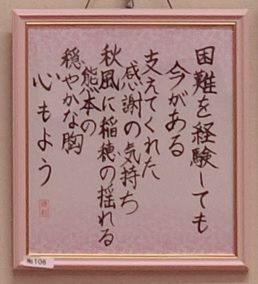 困難を経験しても
今がある
支えてくれた
感謝の気持ち
秋風に稲穂の揺れる
熊本の
穏やかな胸
心もよう
№106